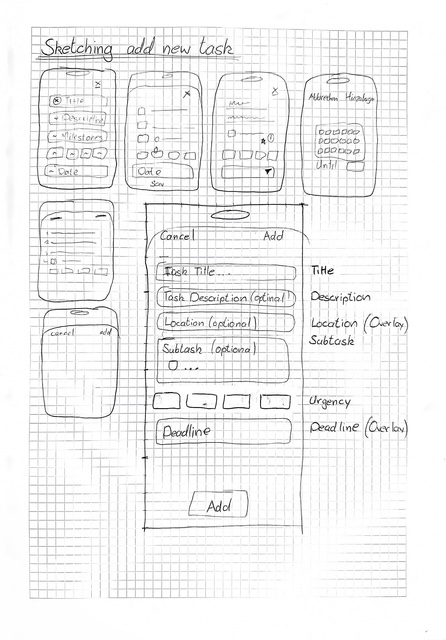 Sketching add new task
x
Title
Description
Milestones
Date
x
Date
x
Abbrechen Hinzufügen
Until
cancel add
Cancel Add
Task Title... Title
Task Description (optinal) Description
Location (optional) Location (Overlay)
Subtask (optional) Subtask
...
Urgency
Deadline Deadline (Overlay)
Add